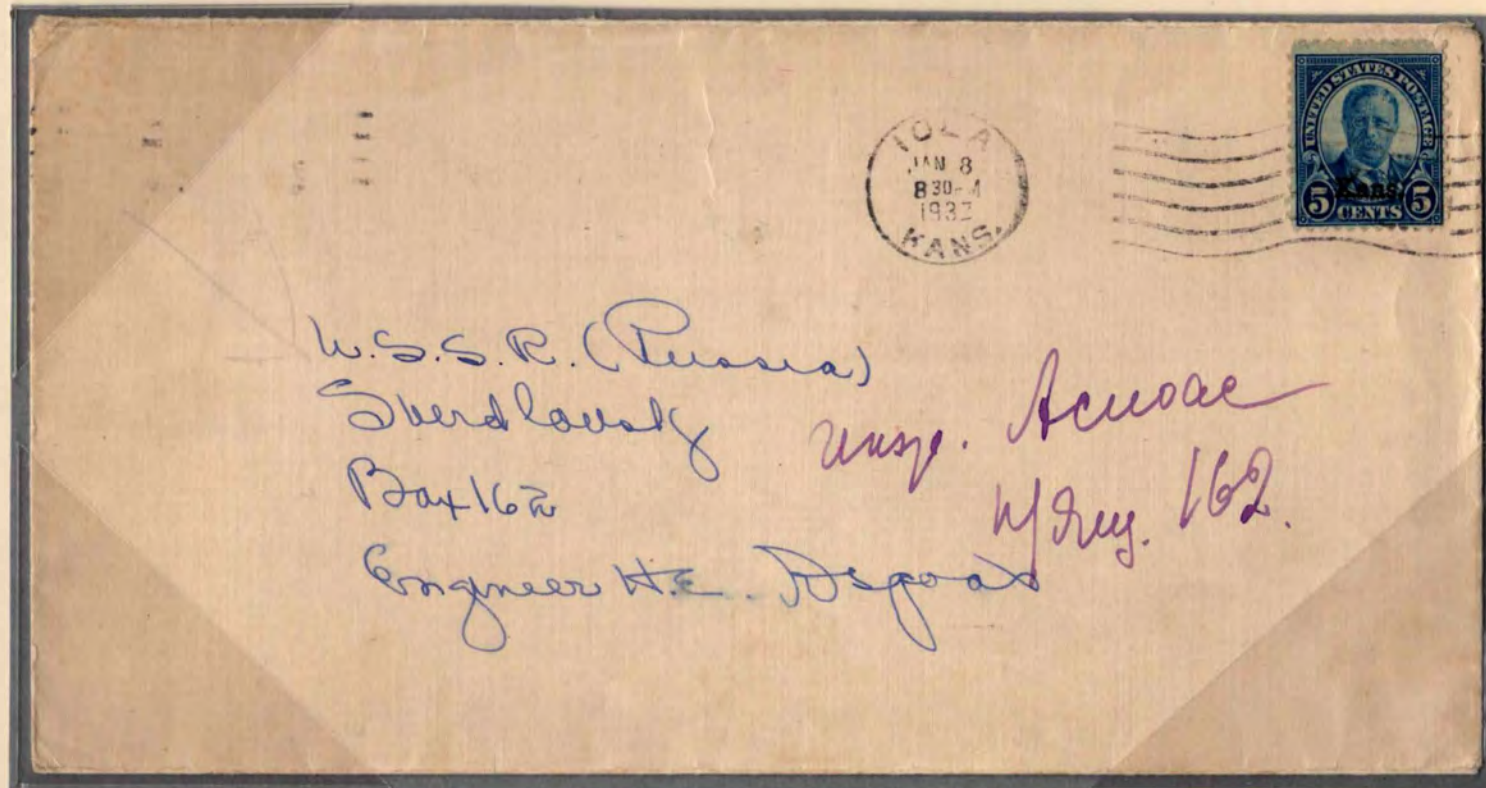 IOLA
JAN 8
8 30- M
1932
KANS.
UNITED STATES POSTAGE
Kans.
5 CENTS 5
U.S.S.R. (Russia)
Sverdlovsk
Box 162
Engineer H.E.
инж.
п/ящ. 162.